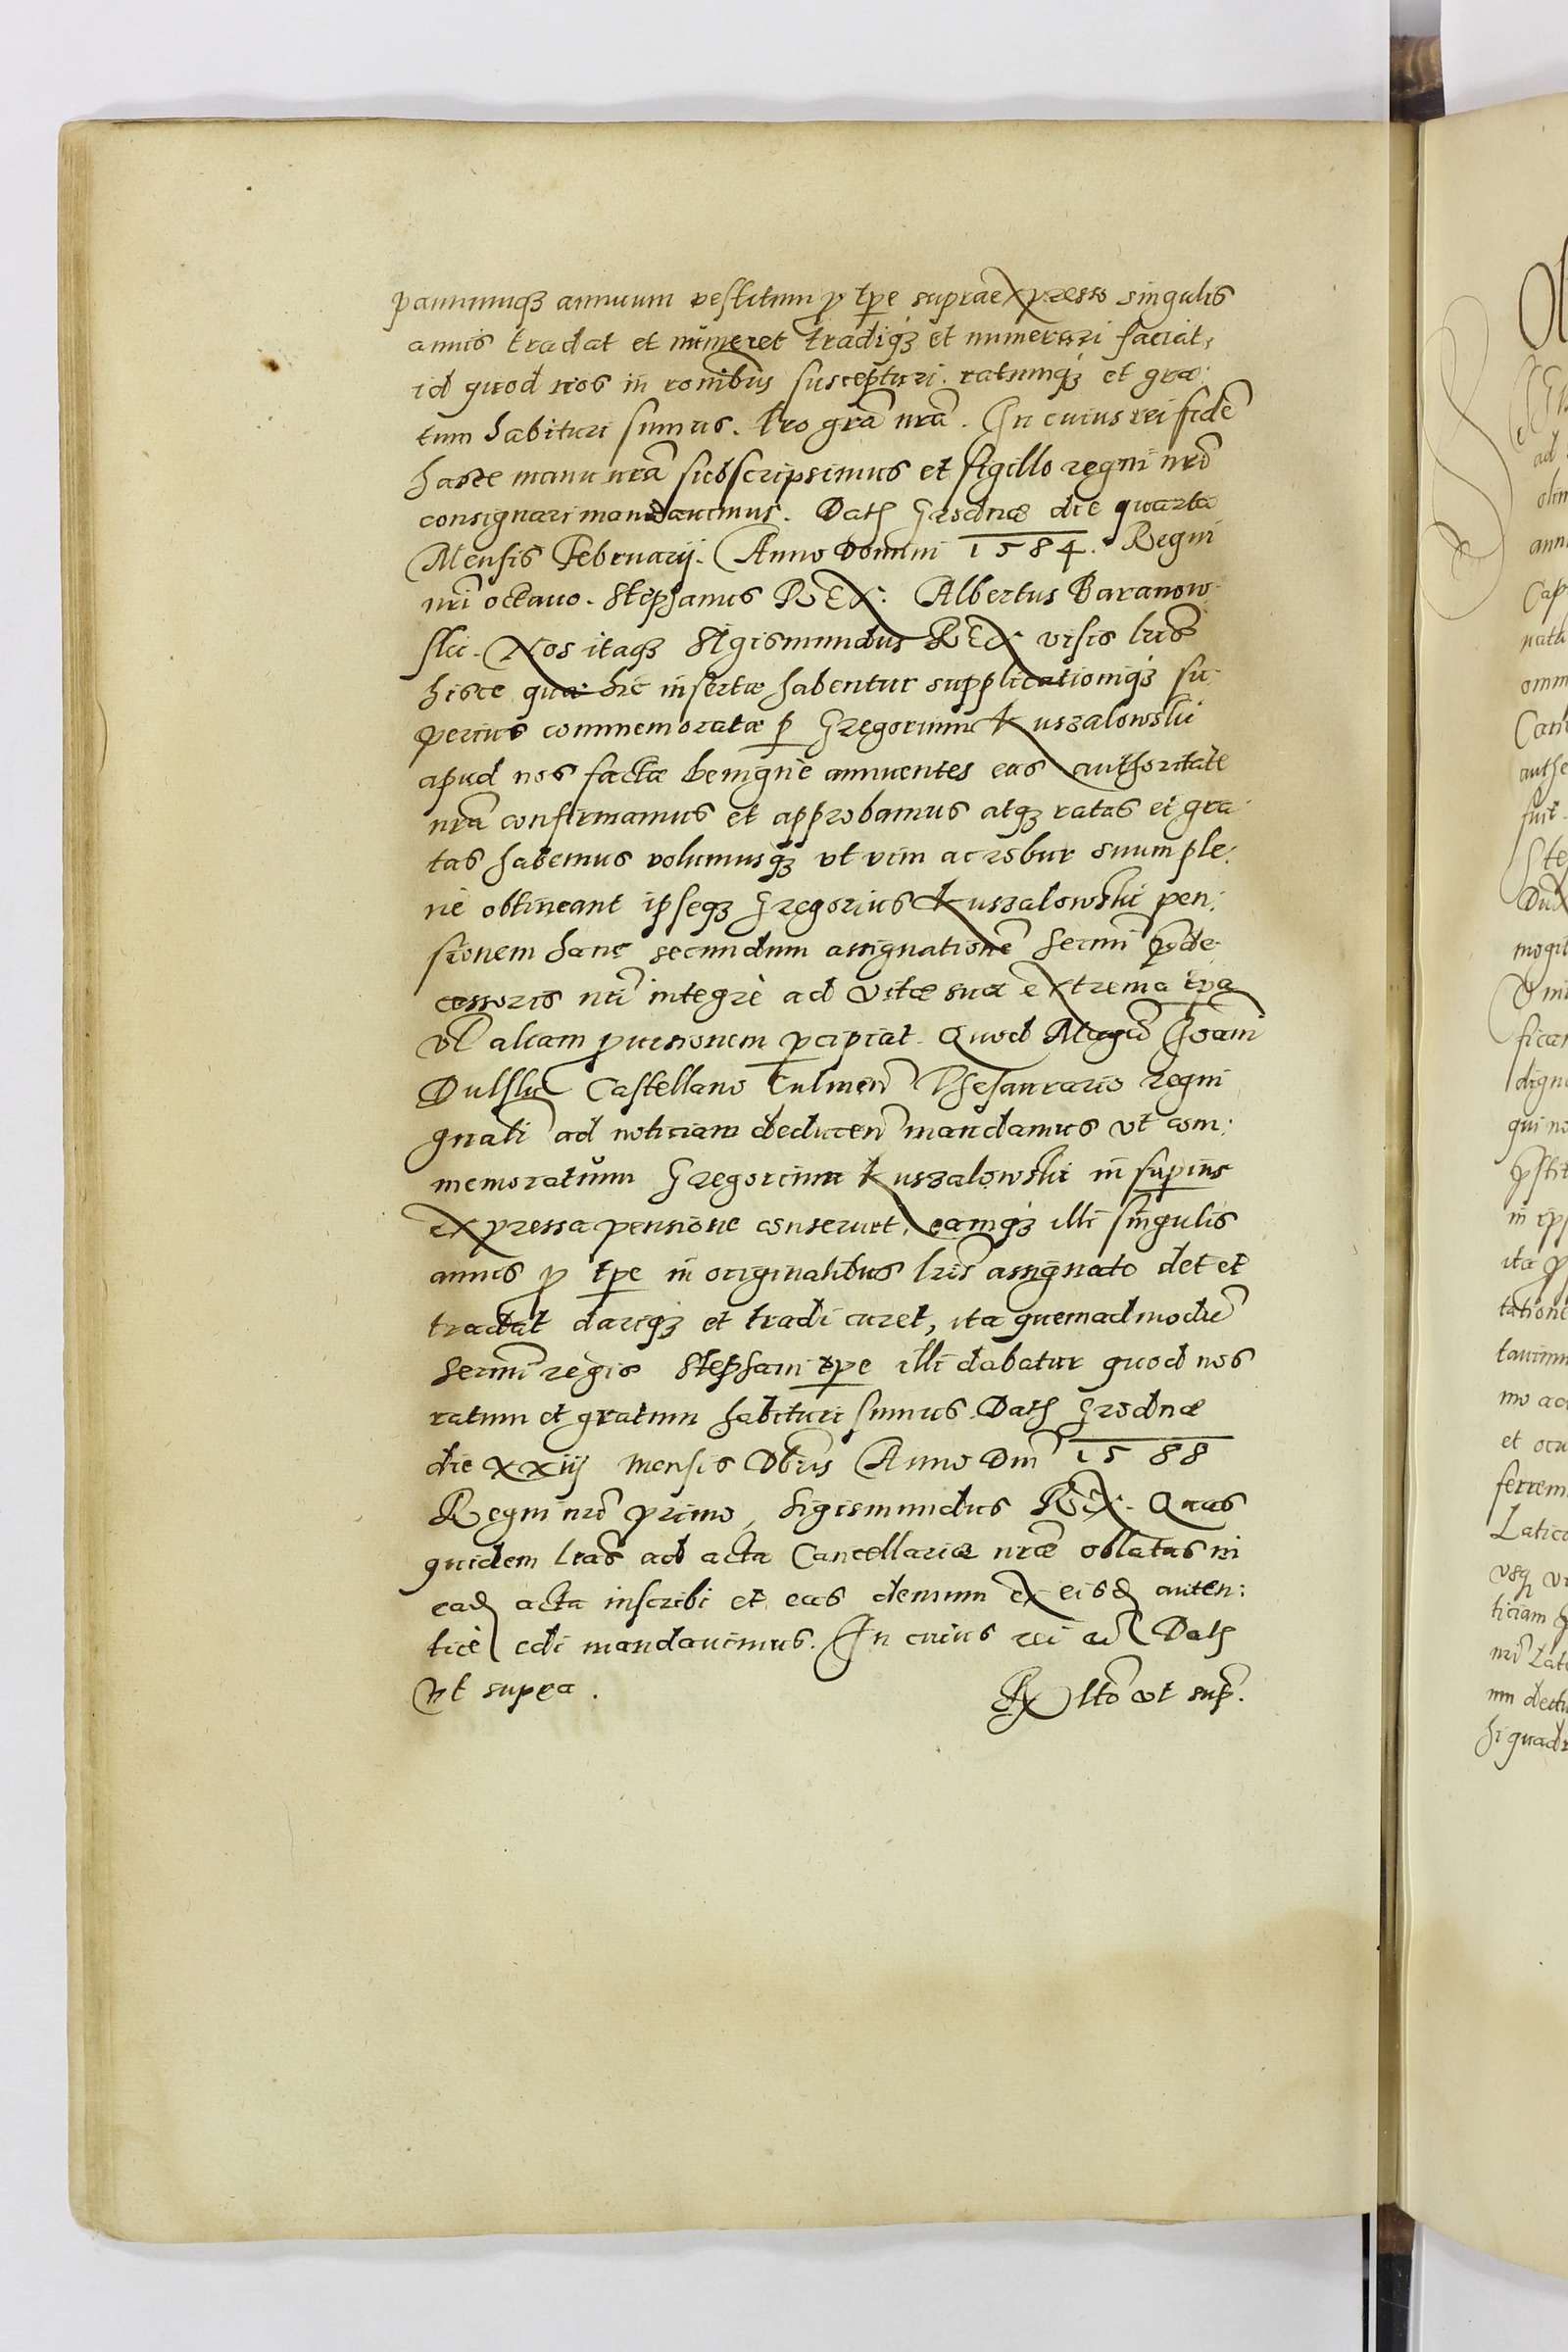 pannumqꝫ annuum vestitum ꝓ tꝑe supraexpresso singulis
annis tradat et numeret tradiqꝫ et numerari faciat,
id quod nos in ronibus suscepturi. ratumqꝫ et gra:
tum habituri sumus. Pro gra nra. In cuius rei fidẽ
hasce manu nra subscripsimus et sigillo regni nro
consignari mandauimus. Datꝭ Grodnæ die quarta
Mensis Februarij. Anno Domini 1584. Regni
nri octauo. Stephanus REX. Albertus Baranow
ski. Nos itaqꝫ Sigismundus REX visis lris
hisce quæ hic insertæ habentur supplicationiqꝫ su:
perius commemoratæ ꝑ Gregorium Kuszalowski
apud nos factæ benignè annuentes eas authoritate
nra confirmamus et approbamus atqꝫ ratas et gra:
tas habemus volumusqꝫ vt vim ac robur suum ple:
nè obtineant ipseqꝫ Gregorius Kuszalowski pen:
sionem hanc secundum assignationẽ sermi p̃de:
cessoris nri integrè ad vitæ suæ extrema tpa
vl aliam ꝓuisionem ꝑcipiat. Quod Magco Joani
Dulski Castellano Culmen Thesaurario regni
gnali ad noticiam deducen mandamus vt com:
memoratum Gregorium Kuszalowski in superius
expressa pensione conseruet, eamqꝫ illi singulis
annis ꝓ tꝑe in originalibus lris assignato det et
tradat dariqꝫ et tradi curet, ita quemadmodũ
sermi regis Stephani tꝑe illi dabatur quod nos
ratum et gratum habituri sumus. Datꝭ Grodnæ
die xxiij mensis Xbris Anno Dni 1588
Regni nro primo, Sigismundus REX. Quas
quidem lras ad acta Cancellariæ nræ oblatas in
eadꝭ acta inscribi et eas demum ex eisdꝭ auten:
ticè edi mandauimus. In cuius rei Datꝭ
vt supra.
Rx lto vt sup.